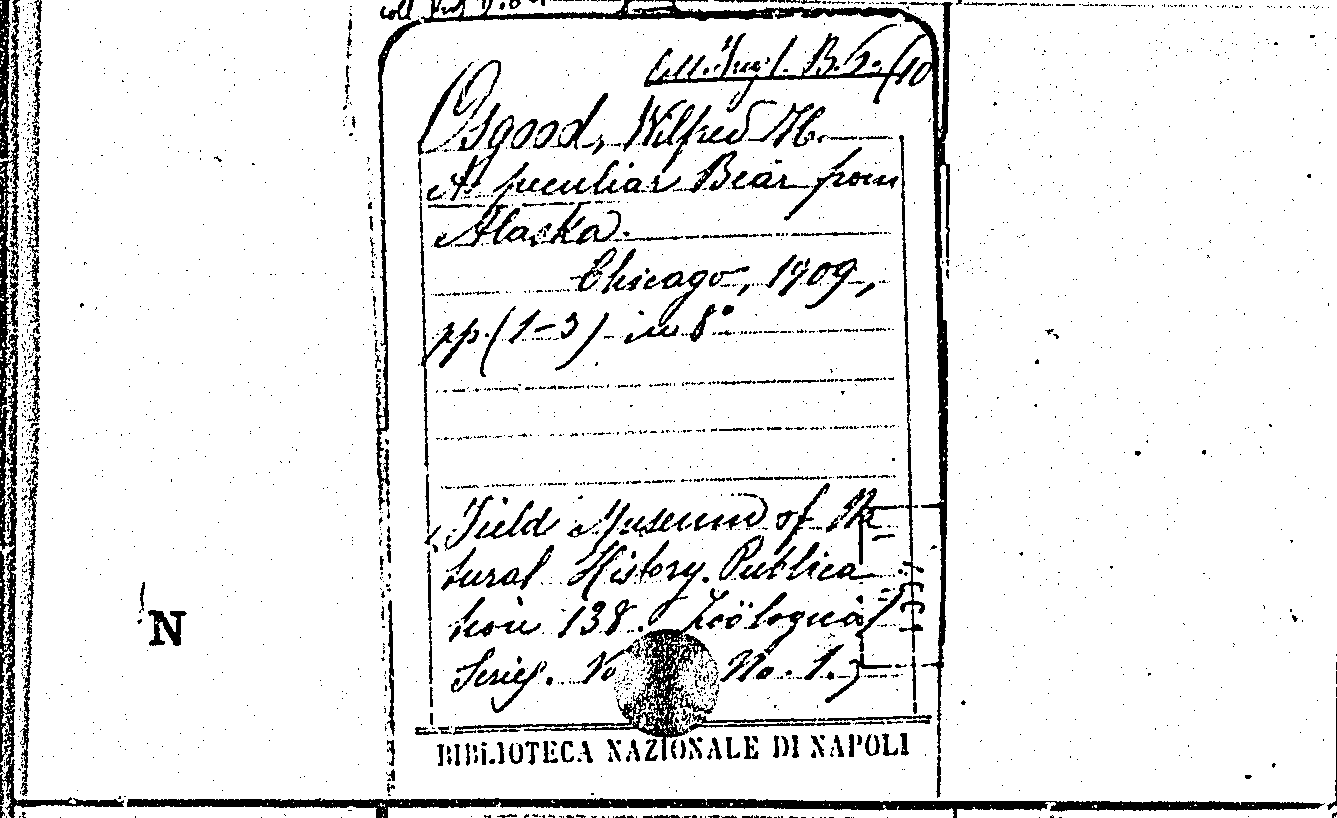 Osgood, Wilfred H.
A peculiar Bear from
Alaska.
Chicago, 1909,
pp. (1-3) in 8°
(Field Museum of Na
tural History. Publica
tion 138. Zoölogical
Series. Vo No. 1.)
N
BIBLIOTECA NAZIONALE DI NAPOLI